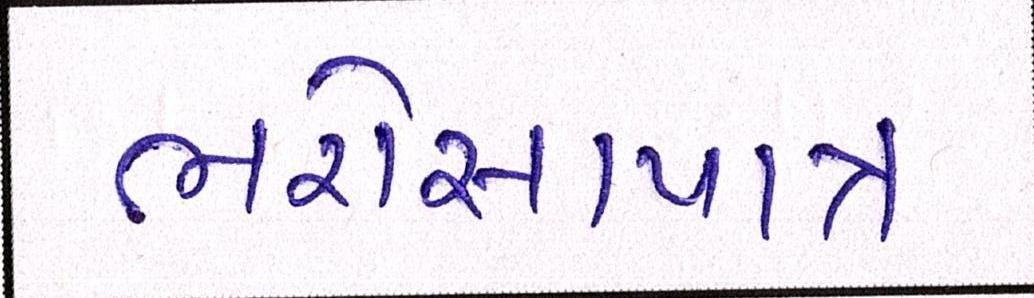 ભરોસાપાત્ર